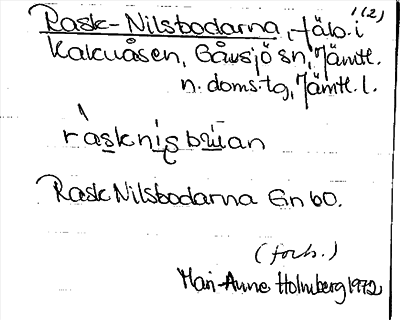 1(2)
Rask-Nilsbodarna, fäb. i
Kalvåsen, Gåxsjö sn, Jämtl.
n. doms.tg, Jämtl. l.
ràsknisbuan
RaskNilsbodarna En bo.
(forts.)
Mari-Anne Holmberg 1972